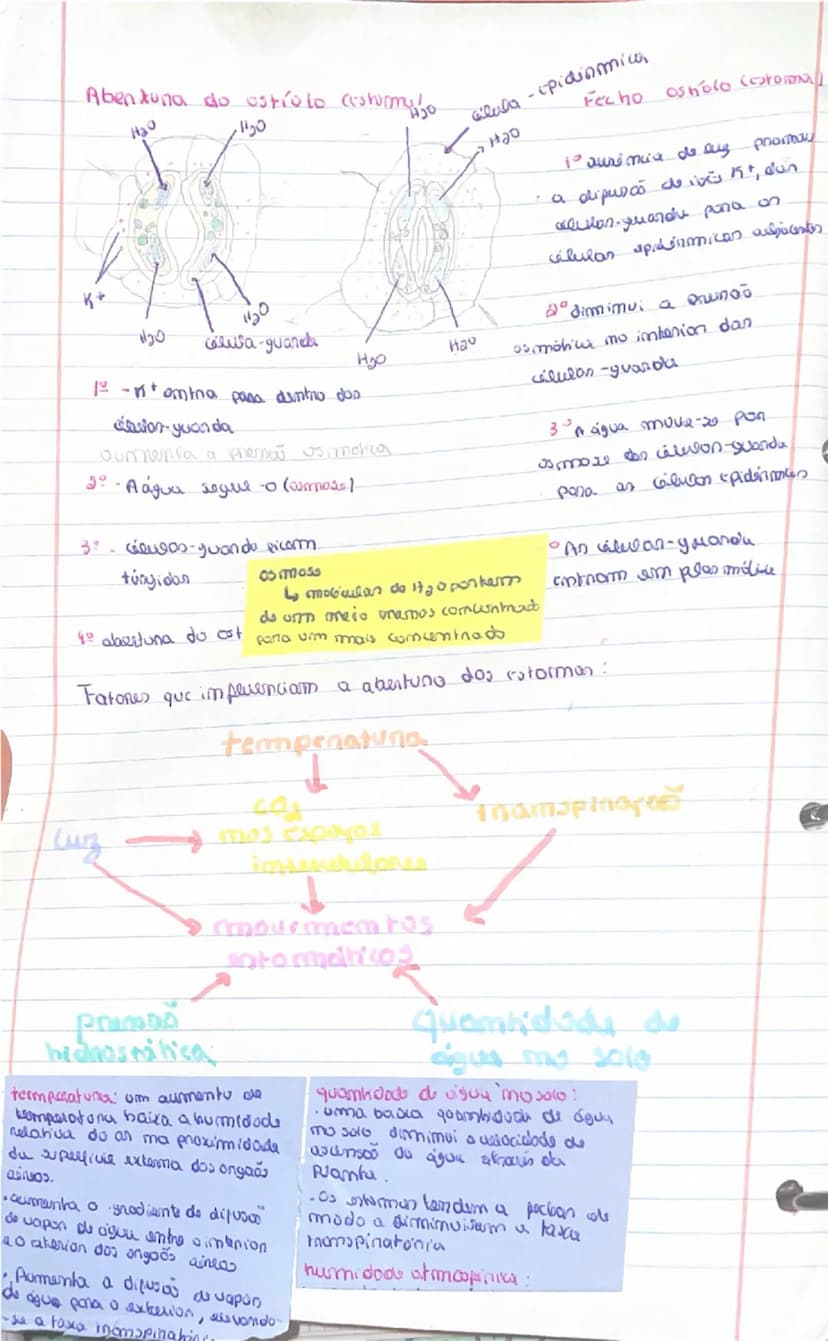 Abertura do ostíolo (estoma)
H2O
H2O
K+
H2O
H2O
célula-guarda
1º - K+ entra para dentro das
células-guarda
aumenta a pressão osmótica
2º - A água segue-o (osmose)
3º - células-guarda ficam
túrgidas
4º abertura do ost
H2O
célula-epidérmica
H2O
H2O
H2O
Fecho ostíolo (estoma)
1º ausência de luz promove
a difusão de iões K+, das
células-guarda para as
células epidérmicas adjacentes
2º diminui a pressão
osmótica no interior das
células-guarda
3º A água move-se por
osmose das células-guarda
para as células epidérmicas
º As células-guarda
entram em plasmólise
osmose
↳ moléculas de H2O partem
de um meio menos concentrado
para um mais concentrado
Fatores que influenciam a abertura dos estomas:
temperatura
CO2
nos espaços
intercelulares
transpiração
luz
movimentos
estomáticos
pressão
hidrostática
quantidade de
água no solo
temperatura: um aumento de
temperatura baixa a humidade
relativa do ar na proximidade
da superfície externa dos orgãos
aéreos.
• aumenta o gradiente de difusão
de vapor de água entre o interior
e o exterior dos orgãos aéreos
• Aumenta a difusão de vapor
de água para o exterior, elevando
-se a taxa transpiratória.
quantidade de água no solo:
• uma baixa quantidade de água
no solo diminui a velocidade de
ascensão da água através da
planta.
- Os estomas tendem a fechar de
modo a diminuirem a taxa
transpiratória
humidade atmosférica: